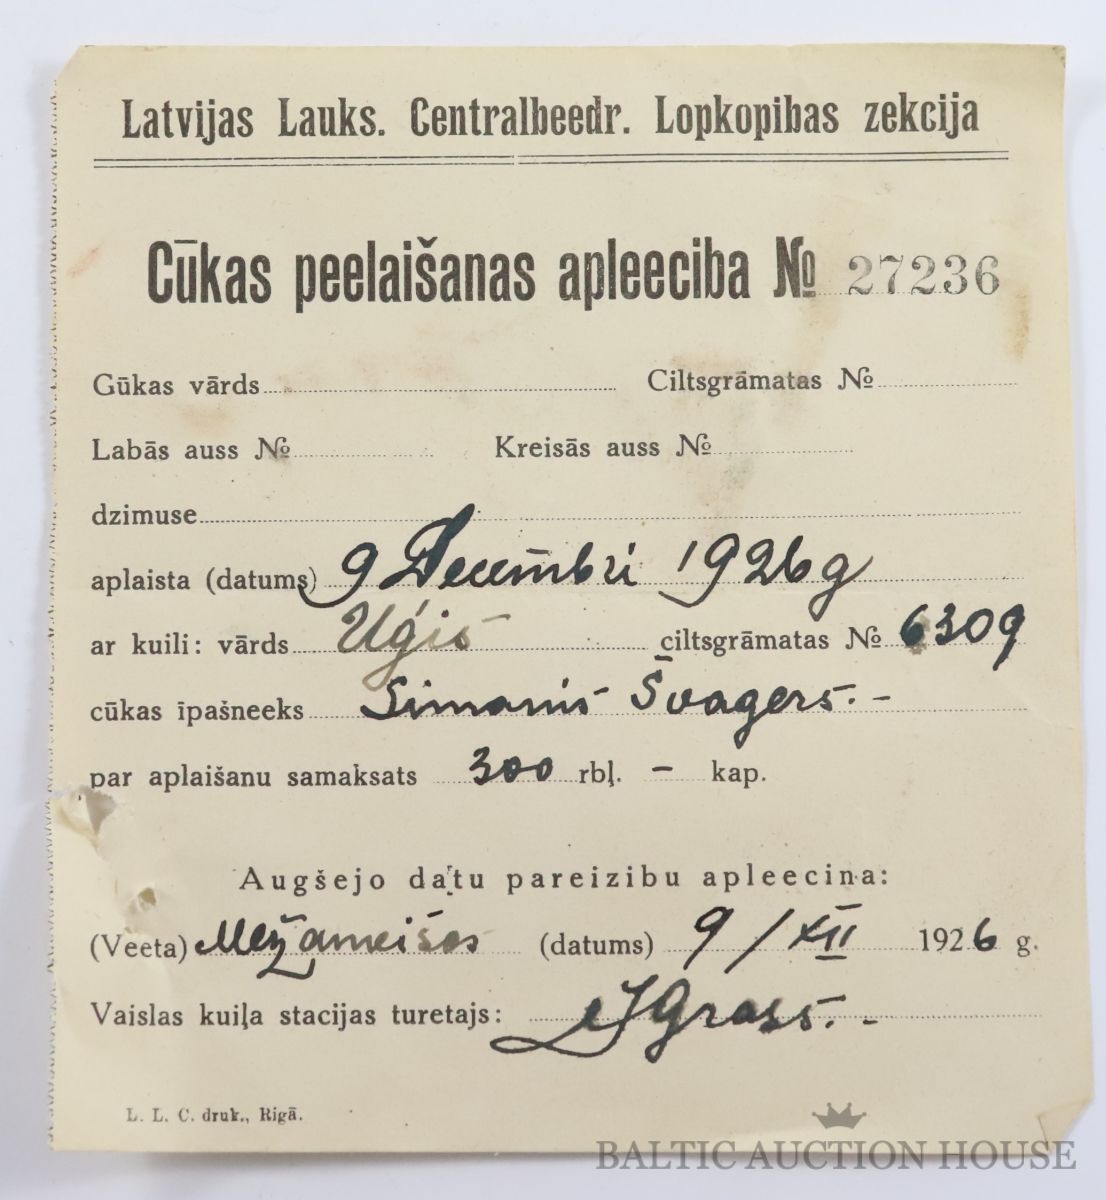 Latvijas Lauks. Centralbeedr. Lopkopibas zekcija
Cūkas peelaišanas apleeciba № 27236
Gūkas vārds Ciltsgrāmatas №
Labās auss № Kreisās auss №
dzimuse
aplaista (datums) 9 Decembri 1926 g
ar kuili: vārds Uģis ciltsgrāmatas № 6309
cūkas īpašneeks Simanis Švagers. -
par aplaišanu samaksats 300 rbļ. - kap.
Augšejo datu pareizibu apleecina:
(Veeta) (datums) 9/XII 1926 g.
Vaislas kuiļa stacijas turetajs: JGrass. -
L. L. C. druk., Rigā.
BALTIC AUCTION HOUSE